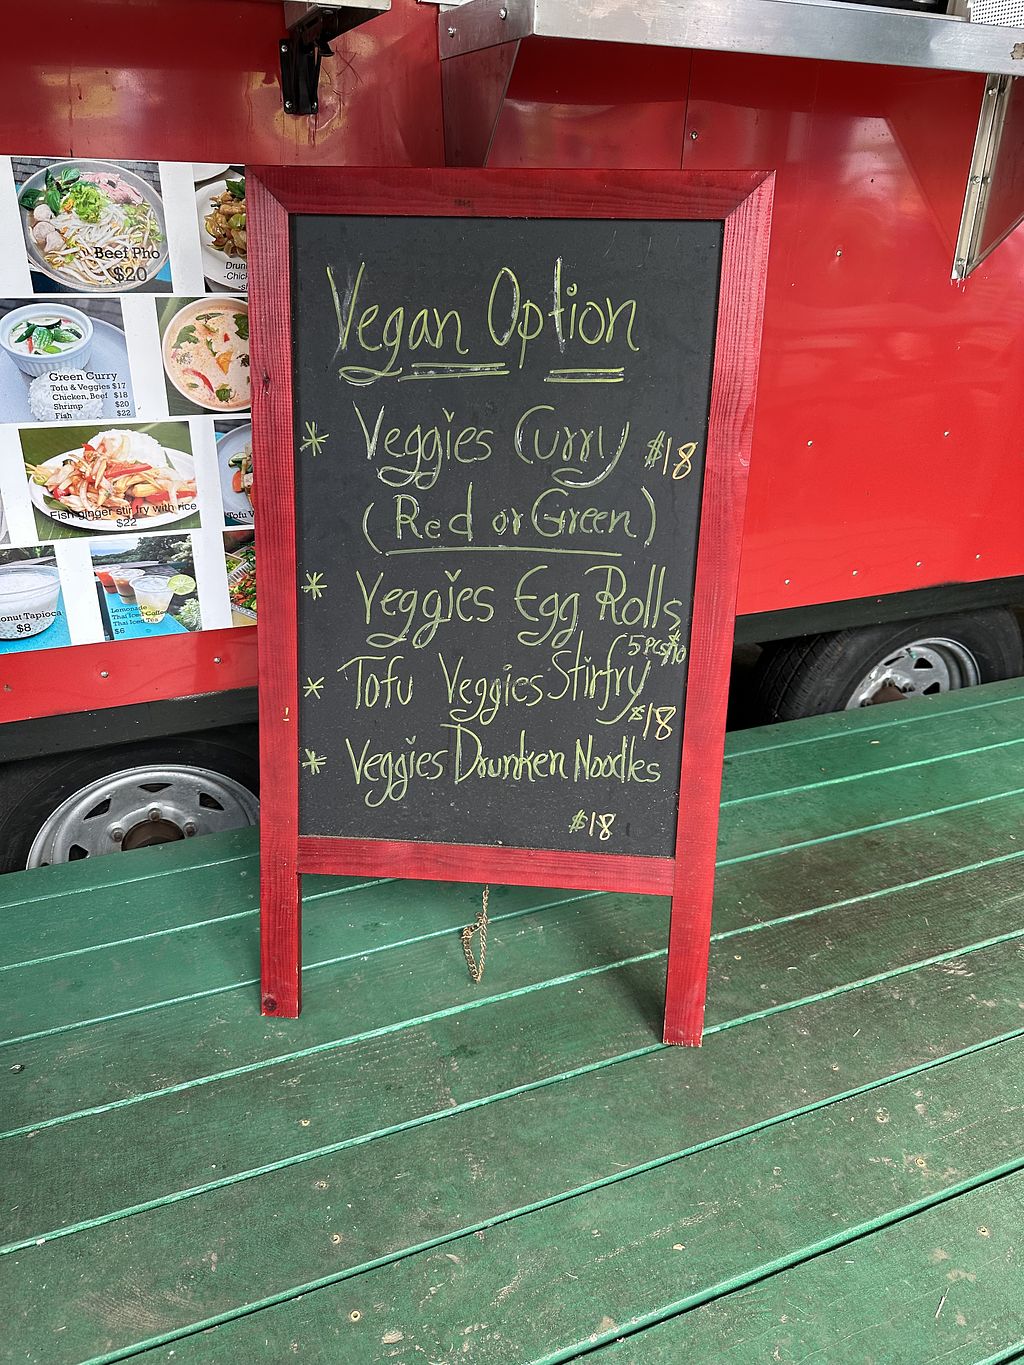 Vegan Option
* Veggies Curry $18
(Red or Green)
* Veggies Egg Rolls
5 pcs $10
* Tofu Veggies Stirfry
$18
* Veggies Drunken Noodles
$18
Beef Pho
$20
Green Curry
Tofu & Veggies $17
Chicken, Beef $18
Shrimp $20
Fish $22
Fish ginger stir fry with rice
$22
Tofu V
onut Tapioca
$8
Lemonade
Thai Iced Coffee
Thai Iced Tea
$6
Drun
-Chic